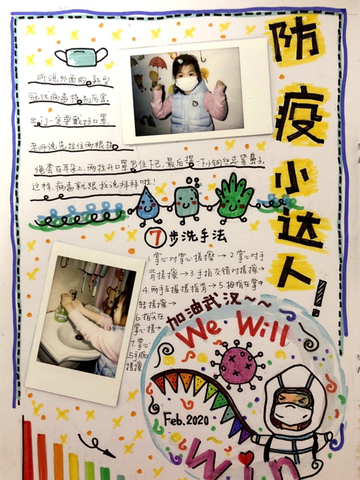 防疫小达人!
听说外面的新型
冠状病毒特别厉害,
出门一定要戴好口罩,
老师说先拉住两根挂
绳套在耳朵上,两拉开口罩包住下巴,最后摁一下小钢丝包紧鼻子,
这样,病毒就跟我说拜拜啦!
7步洗手法
1.掌心对掌心搓擦→2.掌心对手
背搓擦→3.手指交错对搓擦→
4.两手互握搓指背→5.拇指在掌中
转搓擦→
6.指尖在
掌心搓
加油武汉~~
We Will
Win
Feb.2020